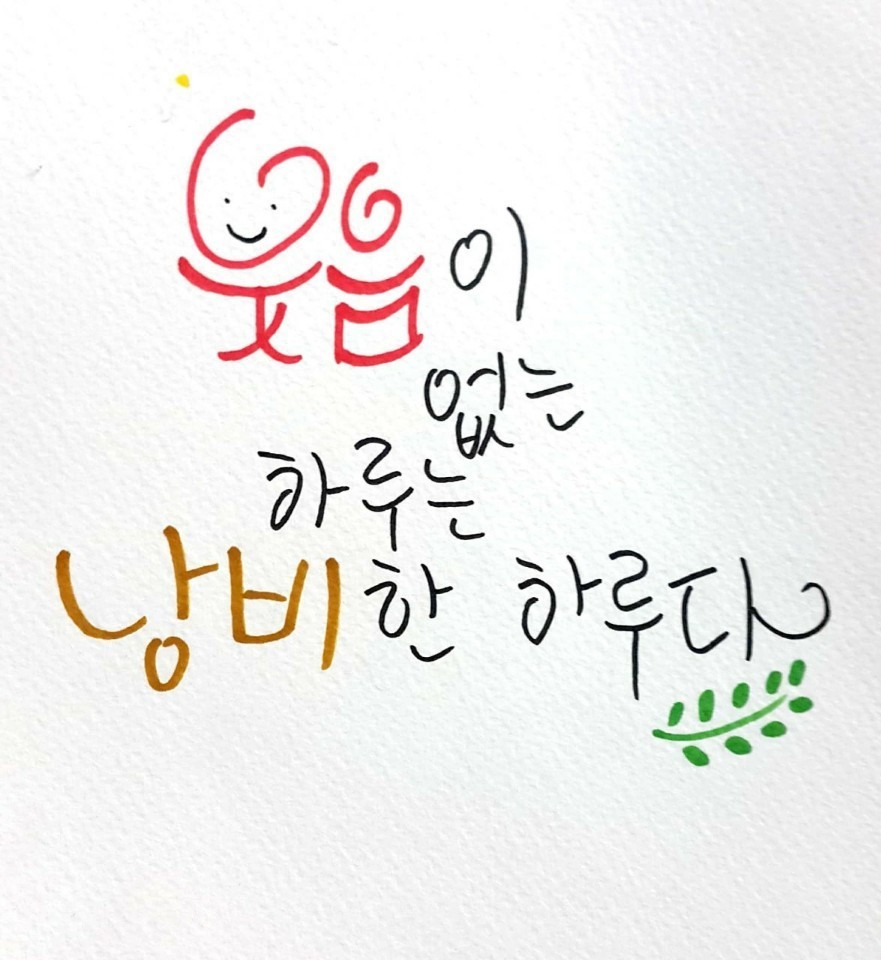 웃음이
없는
하루는
낭비한 하루다